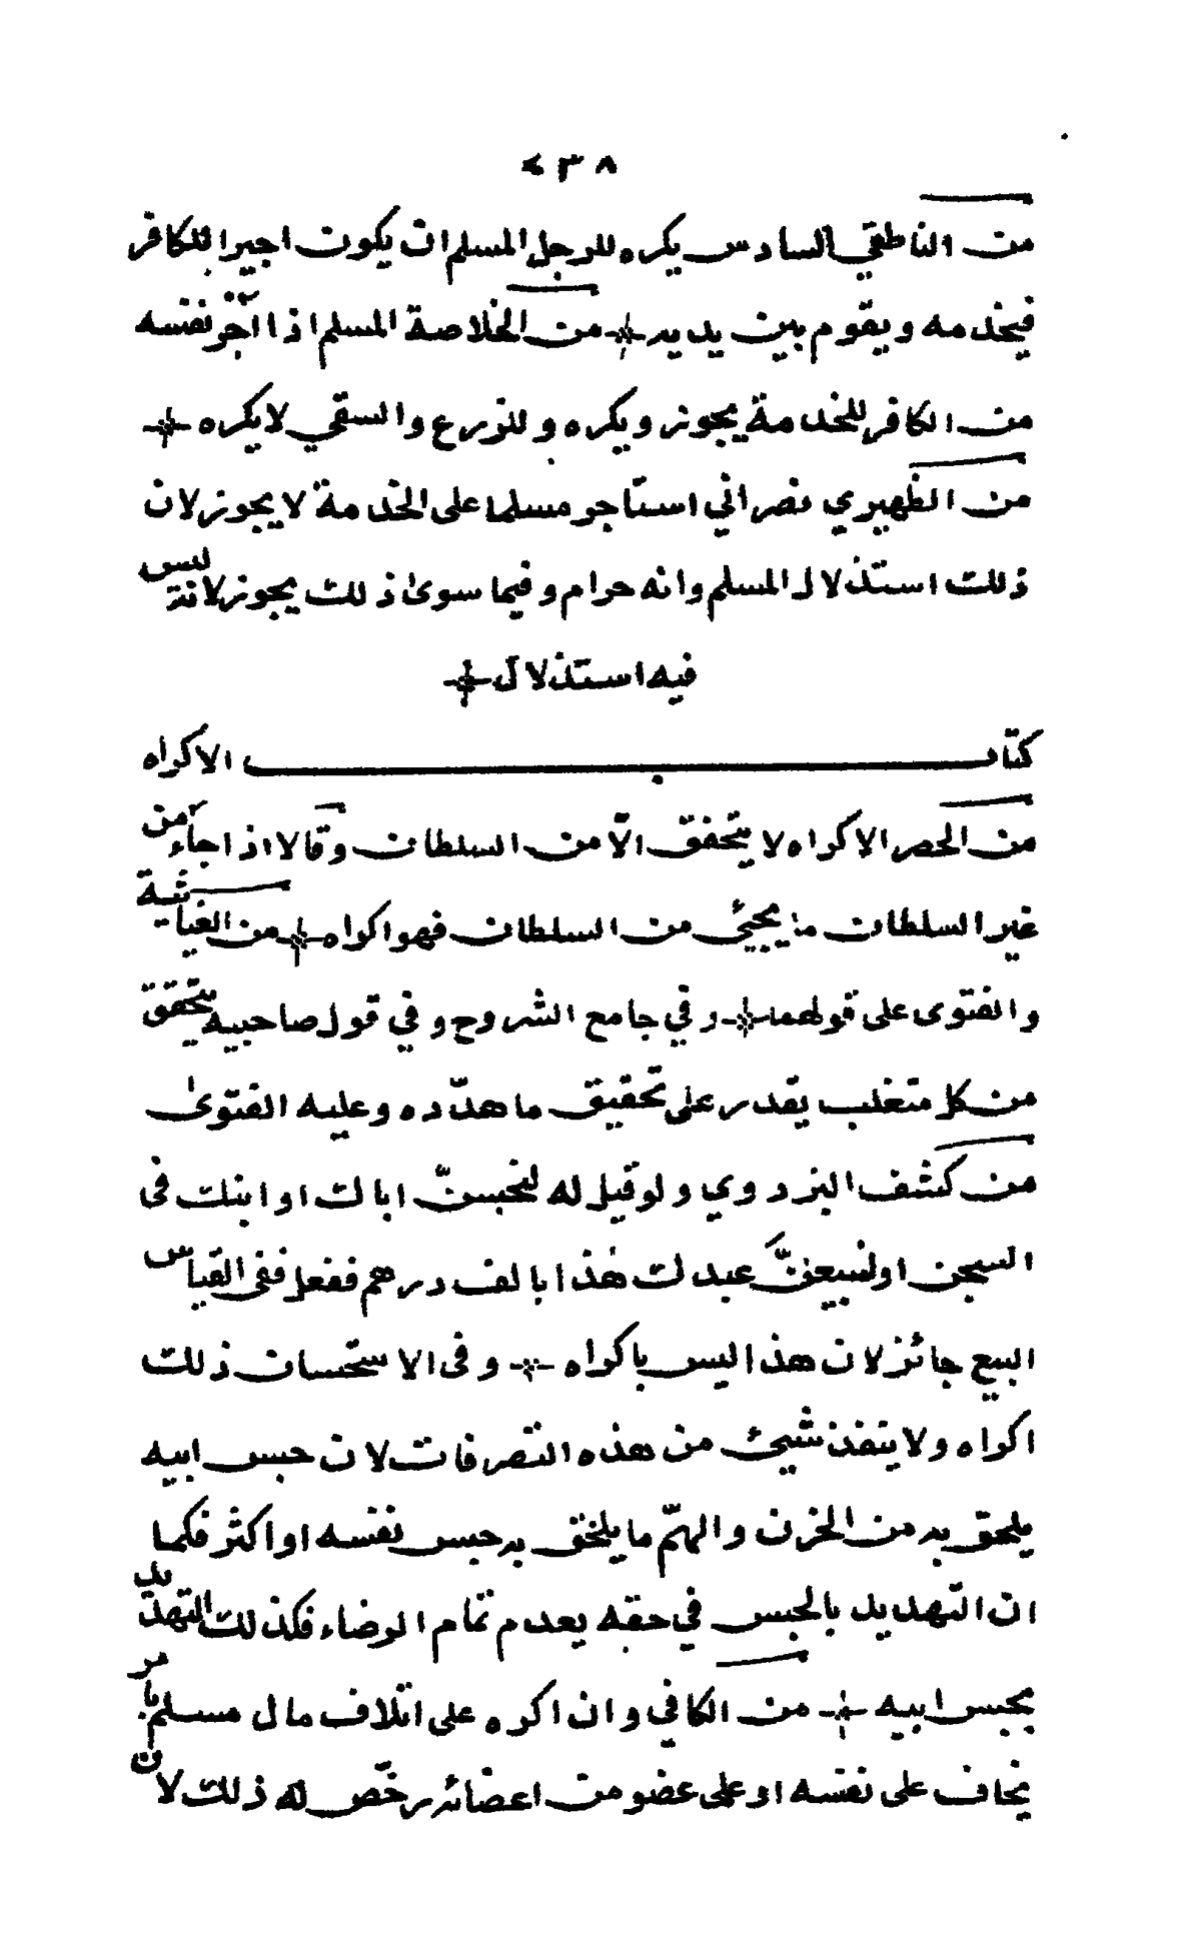 ٢٣٨
من الناطفي السادس يكره للرجل المسلم ان يكون اجيرا للكافر
فيخدمه ويقوم بين يديه من الخلاصة المسلم اذا آجر نفسه
من الكافر للخدمة يجوز ويكره وللزرع والسقي لا يكره
من الظهيري نصراني استاجر مسلما على الخدمة لا يجوز لان
ذلك استذلال المسلم وانه حرام وفيما سوى ذلك يجوز لانه ليس
فيه استذلال
كتاب الاكراه
من الحصر الاكراه لا يتحقق الّا من السلطان وقالا اذا جاء من
غير السلطان ما يجيئ من السلطان فهو اكراه من الغياثية
والفتوى على قولهما وفي جامع الشروح وفي قول صاحبيه يتحقق
من كل متغلب يقدر على تحقيق ما هدّده وعليه الفتوى
من كشف البزدوي ولو قيل له لنحبسنّ اباك او ابنك فى
السجن او لتبيعنّ عبدك هذا بالف درهم ففعل ففى القياس
البيع جائز لان هذا ليس باكراه وفى الاستحسان ذلك
اكراه ولا ينفذ شيئ من هذه التصرفات لان حبس ابيه
يلحق به من الحزن والهمّ ما يلحق به حبس نفسه او اكثر فكما
ان التهديد بالحبس في حقه يعدم تمام الرضاء فكذلك التهديد
بحبس ابيه من الكافي وان اكره على اتلاف مال مسلم بامر
يخاف على نفسه او على عضو من اعضائه رخّص له ذلك لان